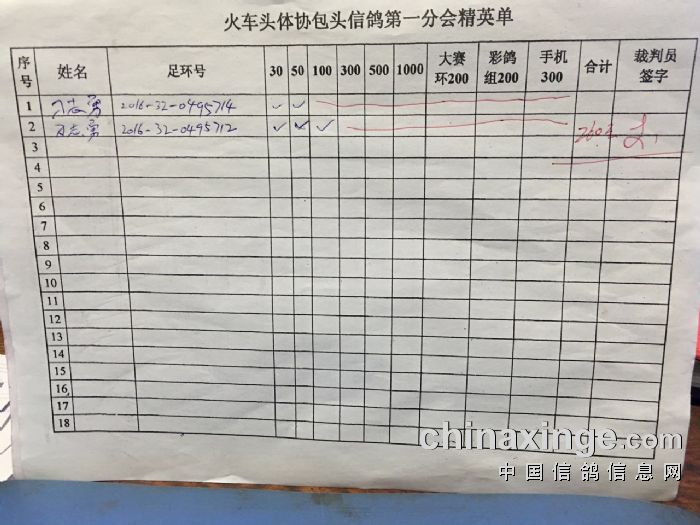 火车头体协包头信鸽第一分会精英单
序号 姓名 足环号 30 50 100 300 500 1000 大赛环200 彩鸽组200 手机300 合计 裁判员签字
1 志勇 2016-32-0495714 ✓ ✓
2 志勇 2016-32-0495712 ✓ ✓ ✓ 260元
3
4
5
6
7
8
9
10
11
12
13
14
15
16
17
18
chinaxinge.com
中国信鸽信息网